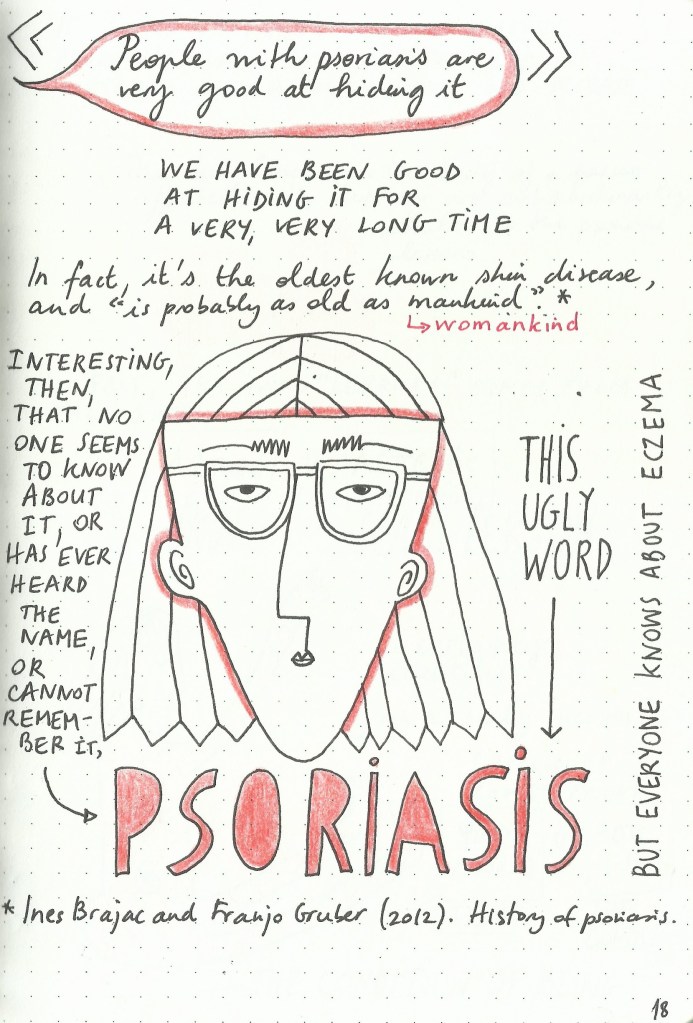 << People with psoriasis are >>
very good at hiding it
WE HAVE BEEN GOOD
AT HIDING IT FOR
A VERY, VERY LONG TIME
In fact, it's the oldest known skin disease,
and "is probably as old as mankind". *
↳ womankind
INTERESTING,
THEN,
THAT NO
ONE SEEMS
TO KNOW
ABOUT
IT, OR
HAS EVER
HEARD
THE
NAME,
OR
CANNOT
REMEM-
BER IT,
THIS
UGLY
WORD
PSORIASIS
BUT EVERYONE KNOWS ABOUT ECZEMA
* Ines Brajac and Franjo Gruber (2012). History of psoriasis.
18